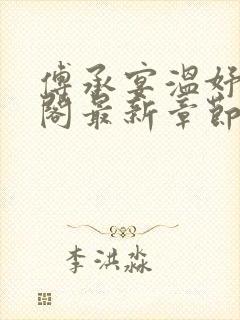 傅承宴温好
阁最新章节
李洪淼